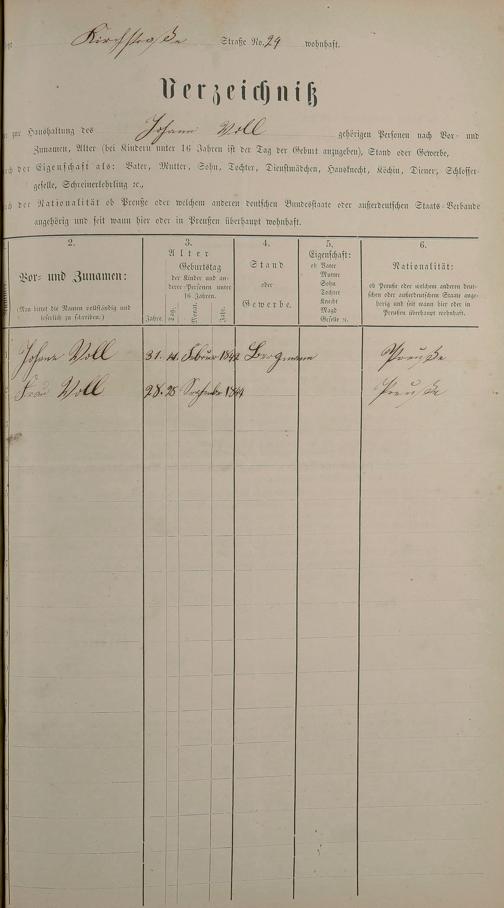 Kirchstraße Straße No. 29 wohnhaft.
Verzeichniß
zur Haushaltung des Johann Voll gehörigen Personen nach Vor- und
Zunamen, Alter (bei Kindern unter 16 Jahren ist der Tag der Geburt anzugeben), Stand oder Gewerbe,
der Eigenschaft als: Vater, Mutter, Sohn, Tochter, Dienstmädchen, Hausknecht, Köchin, Diener, Schlosser-
geselle, Schreinerlehrling ꝛc.,
der Nationalität ob Preuße oder welchem anderen deutschen Bundesstaate oder außerdeutschen Staats-Verbande
angehörig und seit wann hier oder in Preußen überhaupt wohnhaft.
2.
Vor- und Zunamen:
(Man bittet die Namen vollständig und
leserlich zu schreiben.)
3.
Alter
Geburtstag
der Kinder und an-
derer Personen unter
16 Jahren.
Jahre. Tag. Monat. Jahr.
4.
Stand
oder
Gewerbe.
5.
Eigenschaft:
ob Vater
Mutter
Sohn
Tochter
Knecht
Magd
Geselle ꝛc.
6.
Nationalität:
ob Preuße oder welchem anderen deut-
schen oder außerdeutschen Staate ange-
hörig und seit wann hier oder in
Preußen überhaupt wohnhaft.
Johann Voll 31. Februar 1842 Bergmann Preuße
Frau Voll 28. 28 September 1844 Preuße